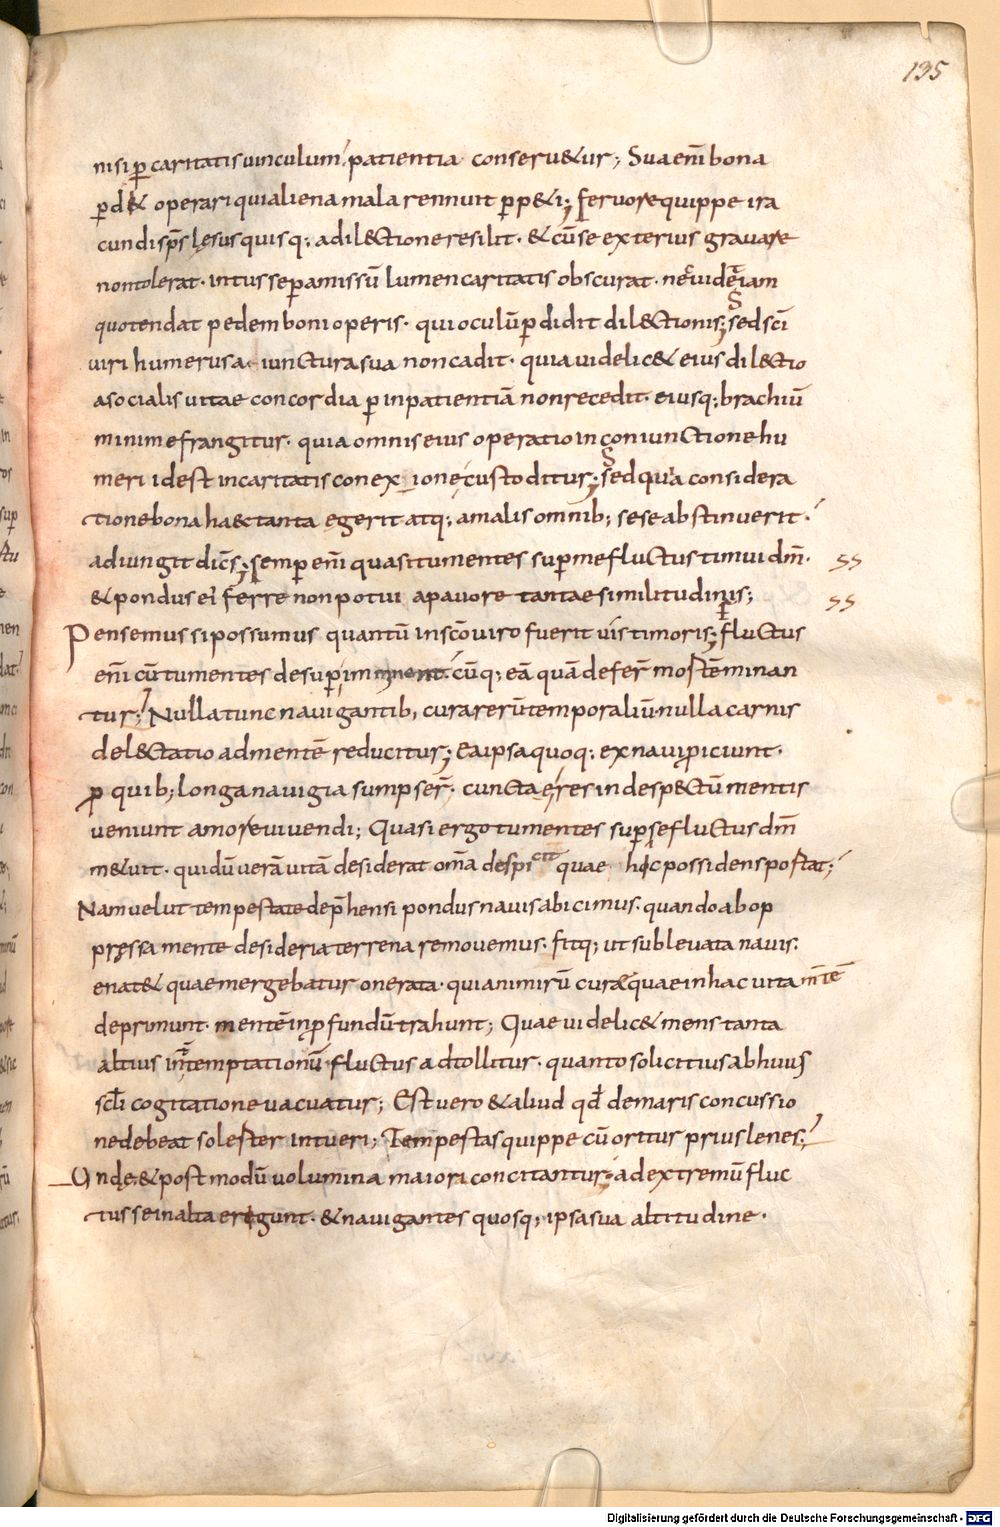 135
nisi ꝑ caritatis uinculum, patientia conseru&ur; Sua eni̅ bona
ꝑd& operari qui aliena mala rennuit ꝑp&i; feruore quippe ira
cundi sp̅s lęsus quisq; a dil&ctione resilit· & cu̅ se exterius grauare
non tolerat· intus se ꝑ amissu̅ lumen caritatis obscurat· ne uideat iam
quo tendat pedem boni operis· qui oculu̅ ꝑdidit dil&ctionis; sed sc̅i
uiri humerus a iunctura sua non cadit· quia uidelic& eius dil&ctio
a socialis uitae concordia ꝑ inpatientia̅ non recedit· eiusq; brachiu̅
minime frangitur· quia omnis eius operatio in coniunctione hu
meri id est in caritatis conexione custoditur; sed quia considera
tione bona haec tanta egerit atq; a malis omnib; sese abstinuerit·
adiungit dic̅s; semper eni̅ quasi tumentes sup me fluctus timui dm̅·
& pondus ei ferre non potui a pauore tantae similitudinis;
Pensemus si possumus quantu̅ in sc̅o uiro fuerit uis timoris; fluctus
eni̅ cu̅ tumentes desuꝑ imminent· cu̅q; ea̅ qua̅ defer̅ morte̅ minan
tur; Nulla tunc nauigantib; cura reru̅ temporaliu̅· nulla carnis
del&ctatio ad mente̅ reducitur; ea ipsa quoq; ex naui ꝓiciunt·
ꝓ quib; longa nauigia sumpser̅· cunctae res in desp&ctu̅ mentis
ueniunt amore uiuendi; Quasi ergo tumentes suꝑ se fluctus dm̅
m&uit· qui du̅ uera̅ uita̅ desiderat om̅a despicit quae hic possidens portat;
Nam uelut tempestate dep̅hensi pondus nauis abicimus· quando ab op
pressa mente desideria terrena remouemus· fitq; ut subleuata nauis·
enat& quae mergebatur onerata· quia nimiru̅ curae quae in hac uita m̅te̅
deprimunt· mente̅ in ꝓfundu̅ trahunt; Quae uidelic& mens tanta
altius int̅ temptationu̅ fluctus adtollitur· quanto solicitius ab huius
sc̅li cogitatione uacuatur; Est uero & aliud qd̅ de maris concussio
ne debeat solester intueri; Tempestas quippe cu̅ oritur prius lenes;
Unde & postmodu̅ uolumina maiori concitantur; ad extremu̅ fluc
tus se in alta erigunt· & nauigantes quosq; ipsa sua altitudine·
Digitalisierung gefördert durch die Deutsche Forschungsgemeinschaft - DFG